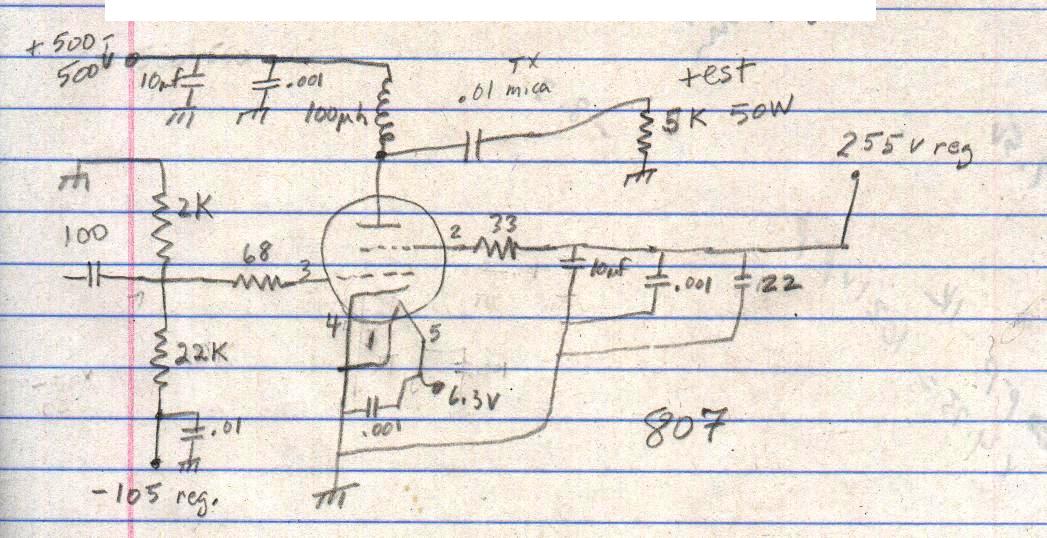 +500T
500V
10uf
.001
100μh
TX
.01 mica
test
5K 50W
255 v reg
2K
100
68
3
2
33
10uf
.001
.22
4
1
5
22K
6.3V
.001
.01
807
-105 reg.